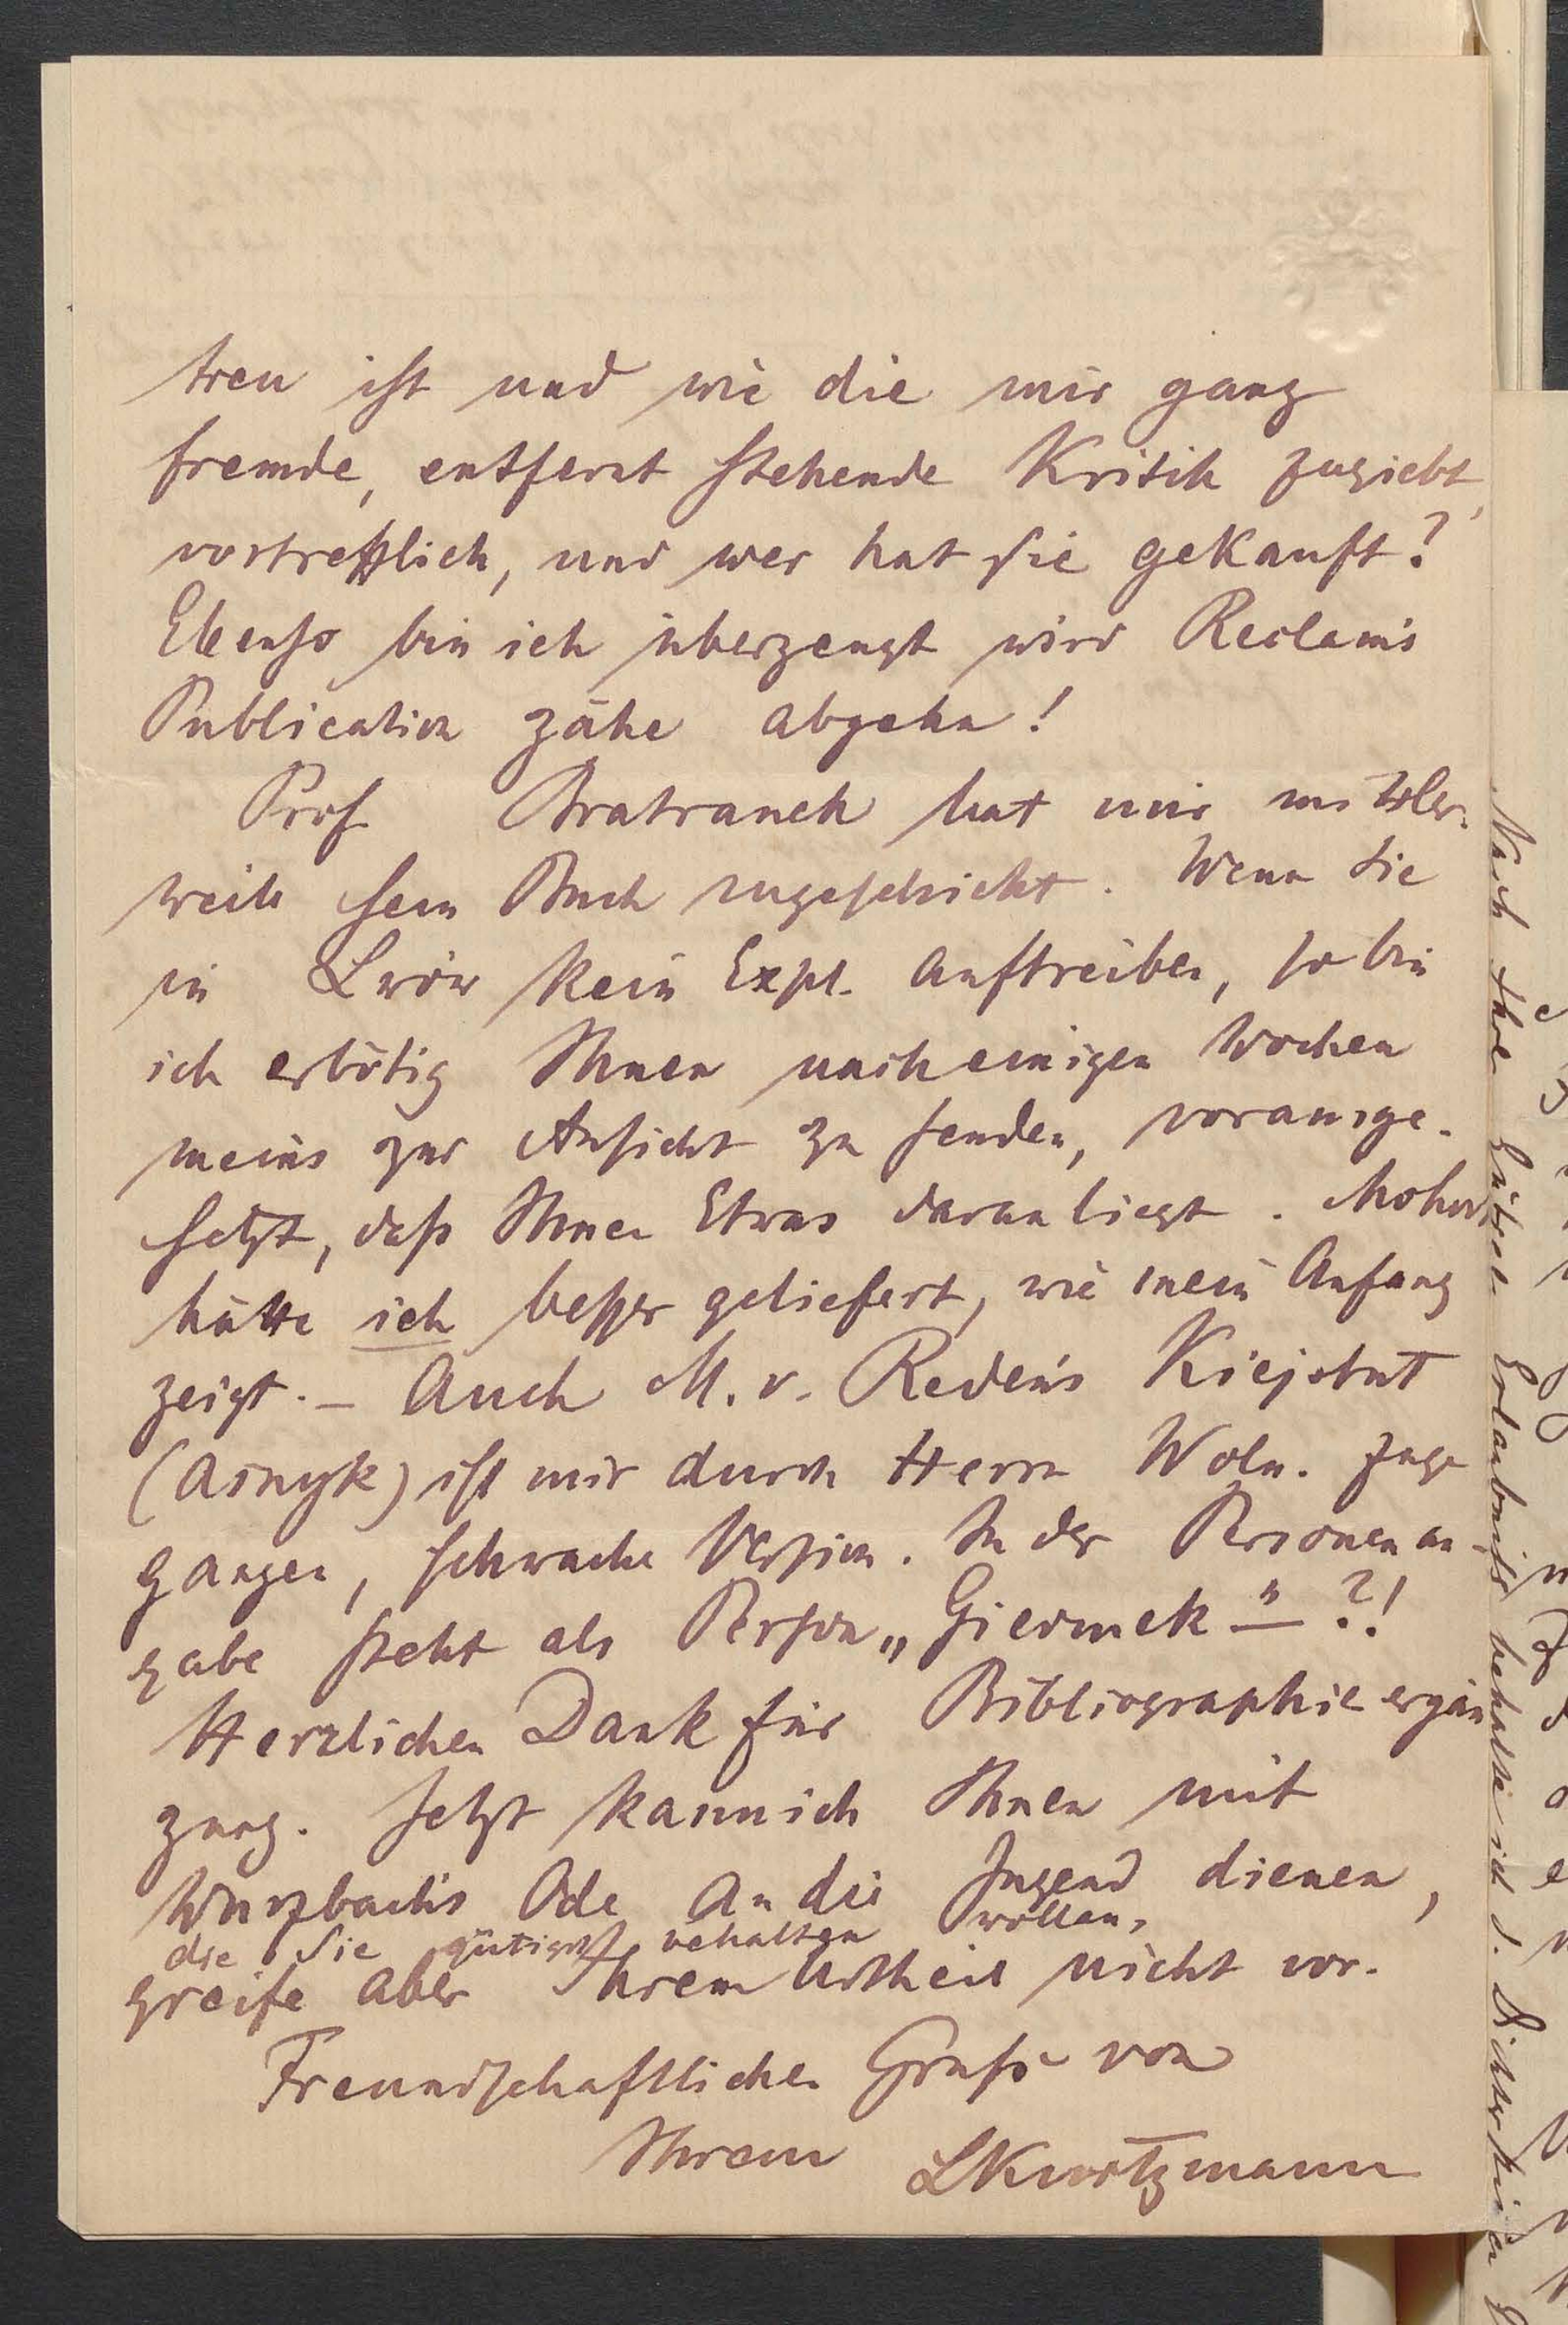 treu ist und wie die mir ganz
fremde, entfernt stehende Kritik zugiebt,
vortrefflich, und wer hat sie gekauft?
Ebenso bin ich überzeugt wird Reclam's
Publication zähe abgehn!
Prof. Bratranek hat mir mittler-
weile sein Buch zugeschickt. Wenn Sie
in Lwów kein Expl. auftreiben, so bin
ich erbötig Ihnen nach einigen Wochen
meins zur Ansicht zu senden, vorausge-
setzt, daß Ihnen Etwas daran liegt. Mohort
hätte ich besser geliefert, wie mein Anfang
zeigt. – Auch M. v. Reden's Kiejstut
(Asnyk) ist mir durch Herrn Woln. zuge
gangen, schwache Version. In der Personenan-
gabe steht als Person „Giermek" – ?!
Herzlichen Dank für Bibliographie ergän
zung. Jetzt kann ich Ihnen mit
Wurzbach's Ode An die Jugend dienen,
die Sie gütigst behalten wollen,
greife aber Ihrem Urtheil nicht vor.
Freundschaftlichen Gruß von
Ihrem LKurtzmann
Nach Ihrer gütigen Erlaubniß behalte ich d.